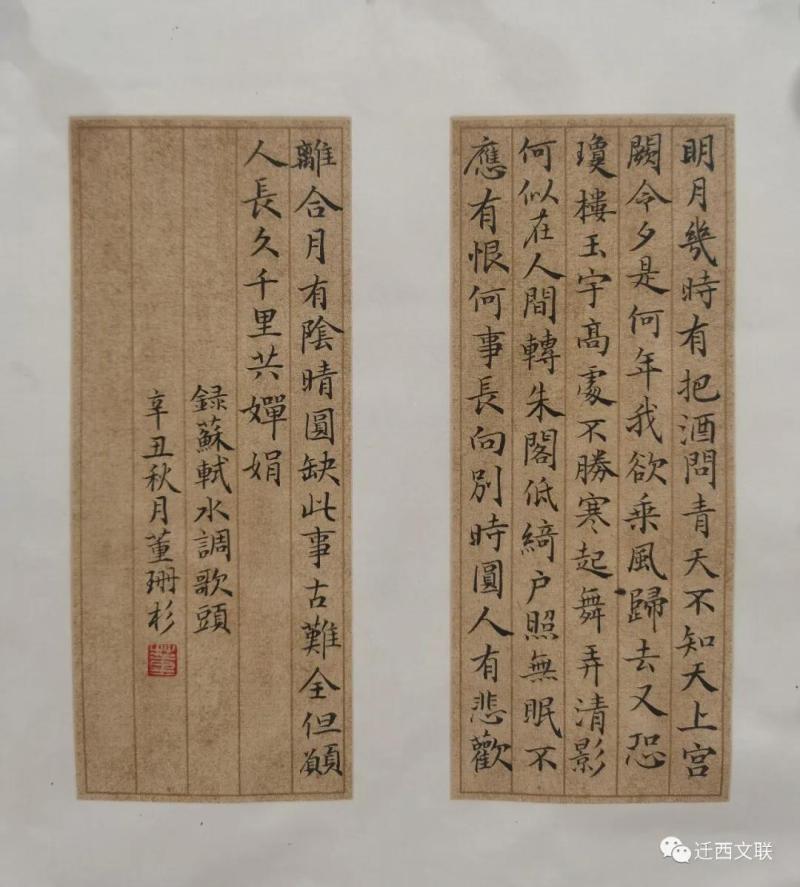 明月幾時有把酒問青天不知天上宮
闕今夕是何年我欲乘風歸去又恐
瓊樓玉宇高處不勝寒起舞弄清影
何似在人間轉朱閣低綺户照無眠不
應有恨何事長向別時圓人有悲歡
離合月有陰晴圓缺此事古難全但願
人長久千里共嬋娟
録蘇軾水調歌頭
辛丑秋月董珊杉
迁西文联